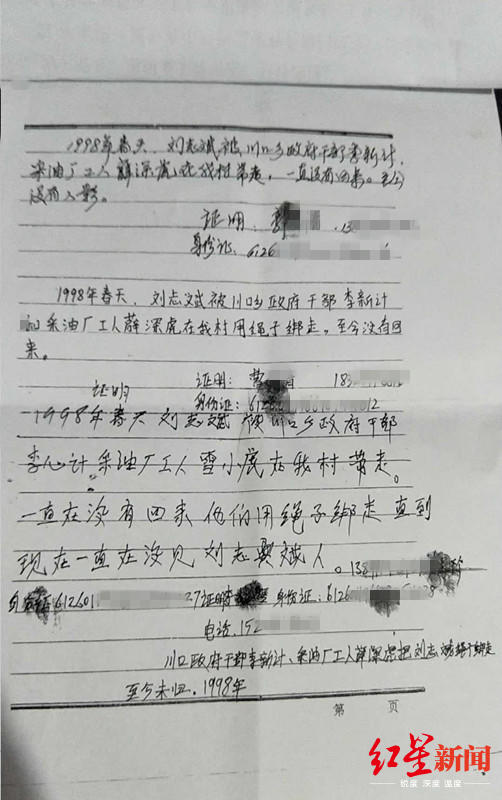 1998年春天、刘志斌被川口乡政府干部李新计、
采油厂工人薛深虎在我村带走,一直没有回来。至今
没有人影。
证明: 郭 13
身份证: 6126
1998年春天、刘志斌被川口乡政府干部李新计
和采油厂工人薛深虎在我村用绳子绑走,至今没有回
来。
证明: 曹 18
证明
身份证: 612 12
1998年春天刘志斌被川口乡政府干部
李心计采油厂工人雪小虎在我村带走。
一直在没有回来他们用绳子绑走 直到
现在一直在没见刘志斌人。13
612601 27证明 身份证: 6126
电话. 152
川口政府干部李新计、采油厂工人薛深虎把刘志斌 绑走
至今未归. 1998年
第 页
红星新闻
锐度 深度 温度